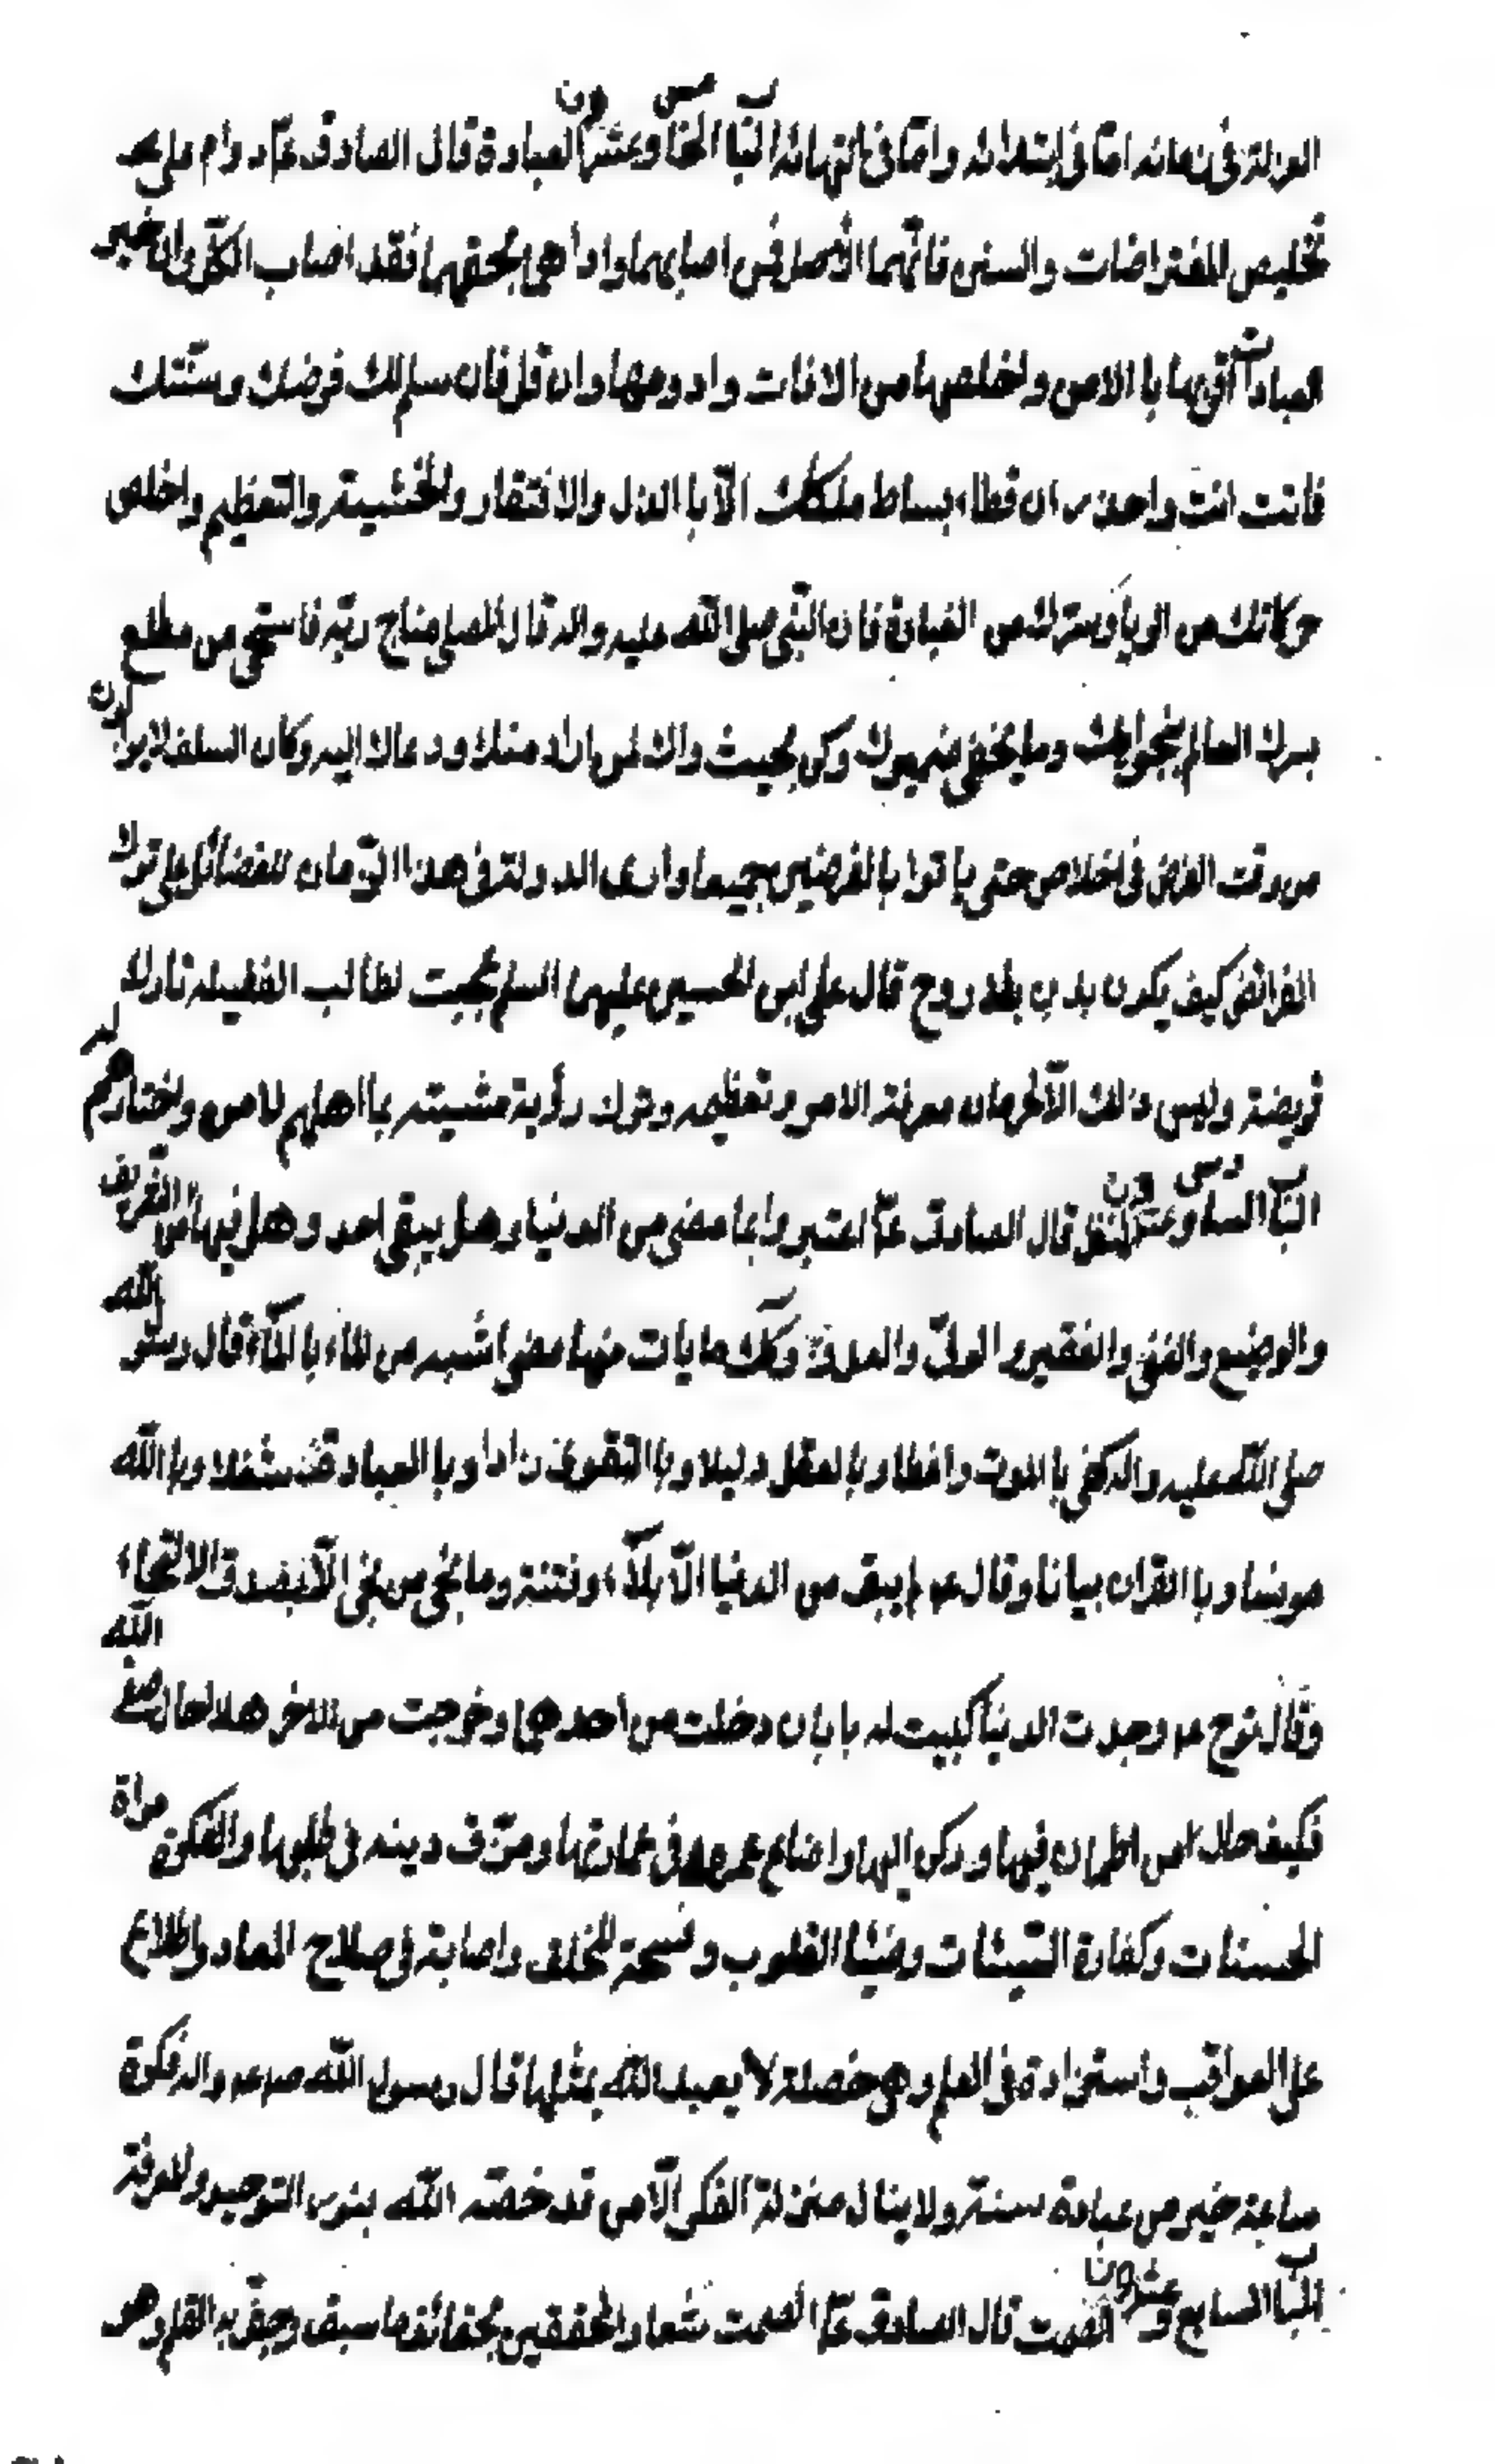 العزلة فى زمانه امّا فى ابتدائه وامّا فى انتهائه الباب الخامس وعشرون العبادة قال الصادق عم دوام على
تخليص المفترضات والسنن فانّهما الأصل فمن اصابهما واداهما بحقهما فقد اصاب الكلّ وان خير
العبادات اقربها بالامن واخلصها من الافات وادومها وان قل فان سلم لك فرضك وسنّتك
فانت انت واحذر ان تطاء بساط ملكك الّا باالذل والافتقار والخشية والتعظيم واخلص
حركاتك من الريا وسرّك من القساوة فان النّبى صلى اللّه عليه واله قال المصلى مناج ربّه فاستحى من مطلع
سرك العالم بنجواك وما يخفى ضميرك وكن بحيث راك لمن اراد منك ودعاك اليه وكان السلف لايزالون
من وقت الفرض فى اخلاص حتى ياتوا باالفرضين جميعا وارى الدولة فى هذا الزّمان للفضائل على ترك
الفرائض كيف يكون بدن بلا روح قال على ابن الحسين عليهما السلم عجبت لطالب الفضيله تارك
فريضة وليس ذلك الّا لحرمان معرفة الامر وتعظيمه وترك رؤية مشيته بما اهلهم لامره واختارهم له
الباب السادس وعشرون التفكر قال الصادق عم اعتبروا بما مضى من الدنيا وهل يبقى احد وهل فيها من الشريف
والوضيع والغنى والفقير والولىّ والعدو وكذلك ما يات منها مضى اشبه من الماء باالماء قال رسول اللّه
صلى اللّه عليه واله كفى باالموت واعظا وباالعقل دليلا وباالتقوى زادا وباالعبادة شغلا وباالله
مونسا وباالقران بيانا وقال عم لم يبق من الدنيا الّا بلاء وفتنة وما نجى من نجى الّا بصدق الالتجاء
وقال نوح عم وجدت الدنيا كبيت له بابان دخلت من احدهما وخرجت من الاخر هذا حال صفى اللّه
فكيف حال من اطمان فيها وركن اليها واضاع عمره فى عمارتها ومزّق دينه فى طلبها والفكرة مراة
الحسنات وكفارة السّيئات وضيئا القلوب وفسحة للخلق واصابة فى صلاح المعاد واطلاع
على العواقب واستزادة فى العلم وهى خصلة لا يعبد اللّه بمثلها قال رسول اللّه صم واله فكرة
ساعة خير من عبادة سنة ولا ينال منزلة الفكر الّا من قد خصّه اللّه بنور التوحيد والمعرفة
الباب السابع وعشرون الصمت قال الصادق عم الصمت شعار المحققين بحقائق ما سبق وجفّ به القلم وهو